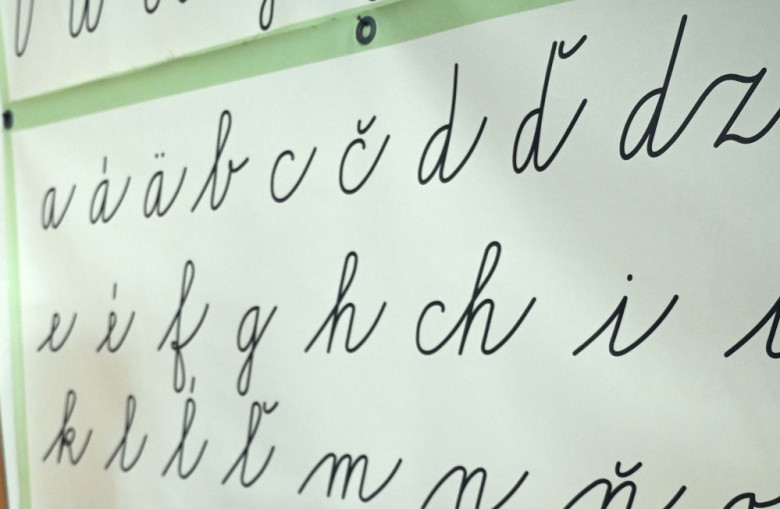 a á ä b c č d ď dz
e é f g h ch i
k l ĺ ľ m n ň